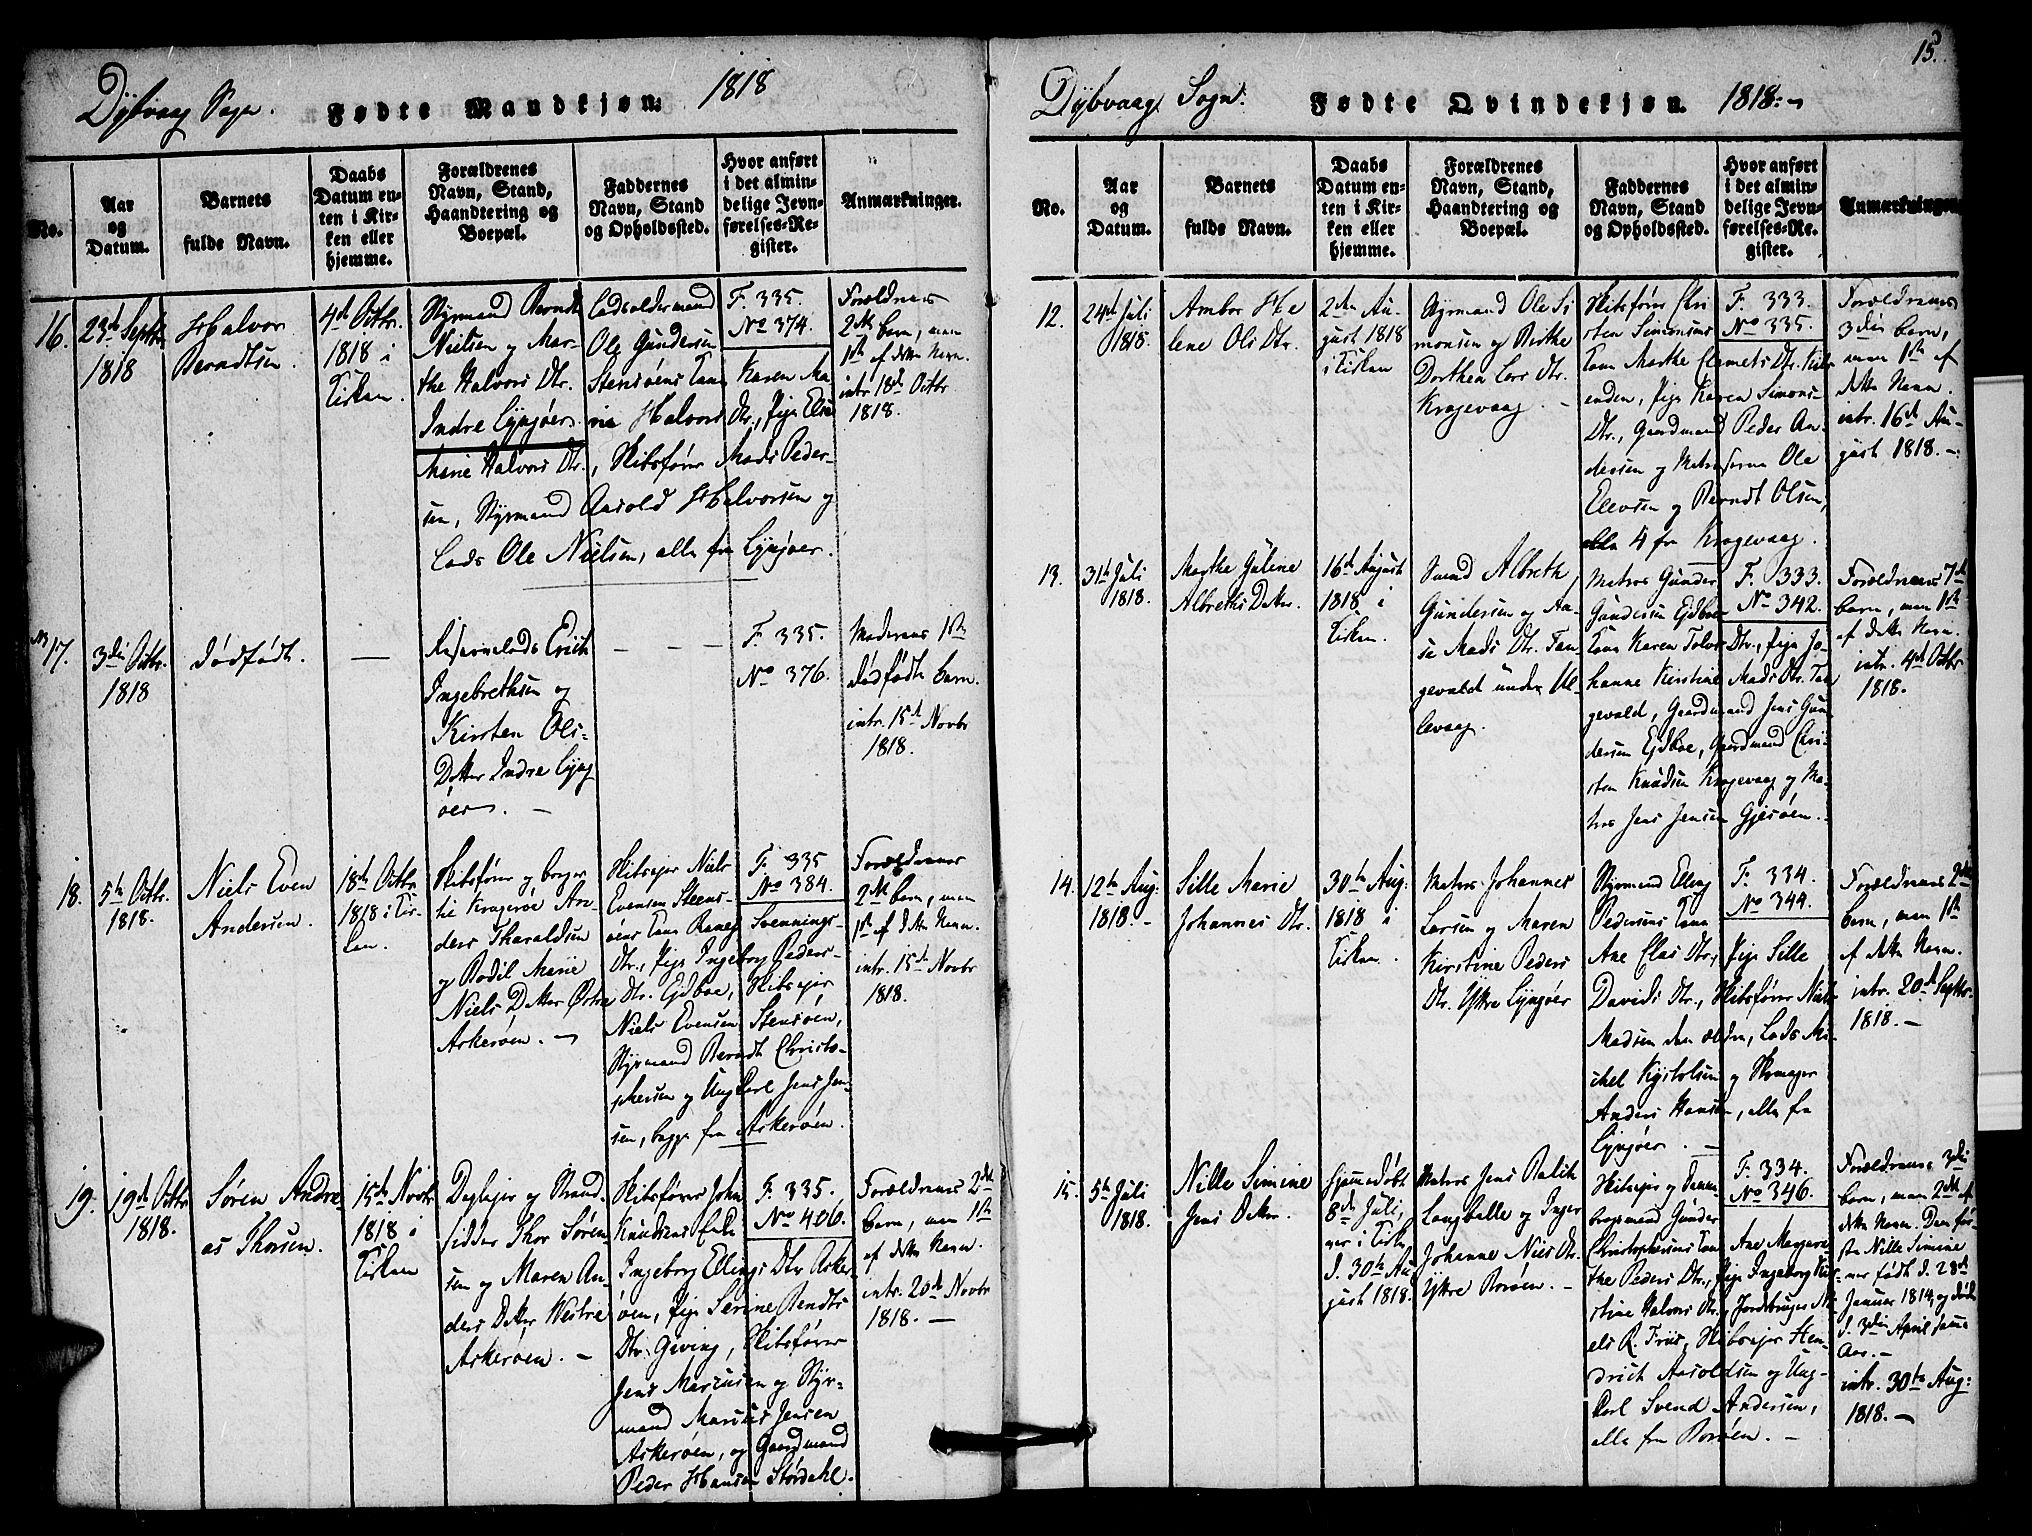 Dybvaag Sogn. Fødte Mandkjøn. 1818
No.
Aar
og
Datum.
Barnets
fulde Navn.
Daabs
Datum en-
ten i Kir-
ken eller
hjemme.
Forældrenes
Navn, Stand,
Haandtering og
Boepæl.
Faddernes
Navn, Stand
og Opholdssted.
Hvor anført
i det almin-
delige Jevn-
førelses-Re-
gister.
Anmærkninger.
16.
23de Septbr
1818
Halvor
Berndtsen
4de Octbr.
1818 i
Kirken.
Styrmand Berndt
Nielsen og Mar-
the Halvors Dtr.
Indre Lyngøer.
Lodsoldermand
Ole Gundersen
Stensøens Kone
Maria Halvors
F. 335.
No 374.
Karen Ma
Dtr., Pige Else
Marie Halvors Dtr., Skibsfører Mads Peder-
sen, Styrmand Aasold Halvorsen og
Lods Ole Nielsen, alle fra Lyngøer.
Forældrenes
2det barn, men
1ste af dette Navn.
intr. 18de Octbr
1818.
17.
3die Octbr.
1818
dødfødt.
Reservelods Erich
Ingebrethsen og
Kirsten Ols-
Datter Indre Lyng
øer.
F. 335.
No 376.
Moderens 1ste
dødfødte barn.
intr. 15de Novbr
1818.
18.
5te Octbr.
1818.
Niels Even
Andersen.
18de Octbr
1818 i Kir-
ken.
Skibsfører og borger
til Kragerøe An-
ders Tharaldsen
og Bodil Marie
Niels Datter Østre
Askerøen.
Skibsejer Niels
Evensen Steens-
øens Kone Ranej
F. 335
No 384.
Svennings-
Dtr., Pige Ingeborg Peders-
Dtr. Ejdboe, Skibsejer
Niels Evensen Stensøen,
Styrmand Berndt Christo-
phersen og Ung Karl Jens Jen-
sen, begge fra Askerøen.
Forældrenes
2det barn, men
1ste af dette Navn.
intr. 15de Novbr
1818.
19.
19de Octbr
1818.
Søren Andre
as Thorsen.
15de Novbr
1818 i
Kirken
Dejlejer og Strand
sidder Thor Søren-
sen og Maren An-
ders Datter Westre
Askerøen.
Skibsfører John
Knudsens Enke
F. 335.
No 406.
Ingeborg Ellings Dtr Aske-
røen, Pige Serine Bendts
Dtr. Giving, Skibsfører
Jens Marcusen og Styr-
mand Marcus Jensen
Askerøen, og Gaardmand
Peder Hansen Størdahl.
Forældrenes 2det
barn, men 1ste
af dette Navn.
intr. 20de Novbr
1818.
15.
Dybvaag Sogn. Fødte Qvindekjøn. 1818.
No.
Aar
og
Datum.
Barnets
fulde Navn.
Daabs
Datum en-
ten i Kir-
ken eller
hjemme.
Forældrenes
Navn, Stand,
Haandtering og
Boepæl.
Faddernes
Navn, Stand
og Opholdssted.
Hvor anført
i det almin-
delige Jevn-
førelses-Re-
gister.
Anmærkninger
12.
24de Juli
1818.
Ambor He
lene Ols Dtr.
2den Au-
gust 1818
i Kirken
Styrmand Ole Si
monsen og Birthe
Dorthea Lars Dtr.
Kragevaag.
Skibsfører Chri
sten Simonsens
F. 333.
No 335.
Kone Marthe Clemets Dtr. Kil-
enden, Pige Karen Simons-
Dtr., Gaardmand Peder An-
dersen og Matroserne Ole
Elevsen og Berndt Olsen,
alle 4 fra Kragevaag.
Forældrenes
3die barn,
men 1ste af
dette Navn.
intr. 16de Au-
gust 1818.
13.
31te Juli
1818.
Marthe Gulene
Albreths Datter.
16de August
1818 i
Kirken.
Svend Albreth
Gundersen og Aa-
se Mads Dtr. Tan-
gevald under Ul-
levaag.
Matros Gunder
Gundersen Ejdboe
F. 333.
No 342.
Kone Karen Tolvs Dtr., Pige Jo-
hanne Kirstine Mads Dtr. Tan
gevald, Gaardmand Jens Gun
dersen Ejdboe, Gaardmand Chri-
sten Knudsen Kragevaag og Ma-
tros Jens Jensen Gjesøen.
Forældrenes 7de
barn, men 1ste
af dette Navn.
intr. 4de Octbr
1818.
14.
12te Aug:
1818.
Sille Marie
Johannes Dtr.
30te Aug:
1818 i
Kirken.
Matros Johannes
Larsen og Maren
Kirstine Peders
Dtr. Ytre Lyngøer
Styrmand Elling
Pedersens Kone
F. 334.
No 344.
Ane Elias Dtr., Pige Sille
Davids Dtr., Skibsfører Niels
Madsen den ældre, Lods Mi-
chel Kystolsen og Skomager
Anders Hansen, alle fra
Lyngøer.
Forældrenes 2det
barn, men 1ste
af dette Navn.
intr. 20de Septbr.
1818.
15.
5te Juli
1818.
Nille Simine
Jens Datter.
Hjemmedøbt
8de Juli,
var i Kirken
d. 30te Au
gust 1818.
Matros Jens Balik
Langballe og Inger
Johanne Niels Dtr.
Ytre Borøen.
Skibsejer og Danne-
brogsmand Gunder
F. 334.
No 346.
Christophersens Kone Ane Margare-
the Peders Dtr., Pige Ingeborg Kir-
stine Halvors Dtr., Jordebruger Ni-
els R. Friis, Skibsejer Hen-
drich Aasoldsen og Ung-
Karl Svend Andersen,
alle fra Borøen.
Forældrenes 3die
barn, men 2det af
dette Navn. Den før-
ste Nille Simine
var født d. 28de
Januar 1814, og døde
d. 3die April samme
Aar.
intr. 30te Aug:
1818.